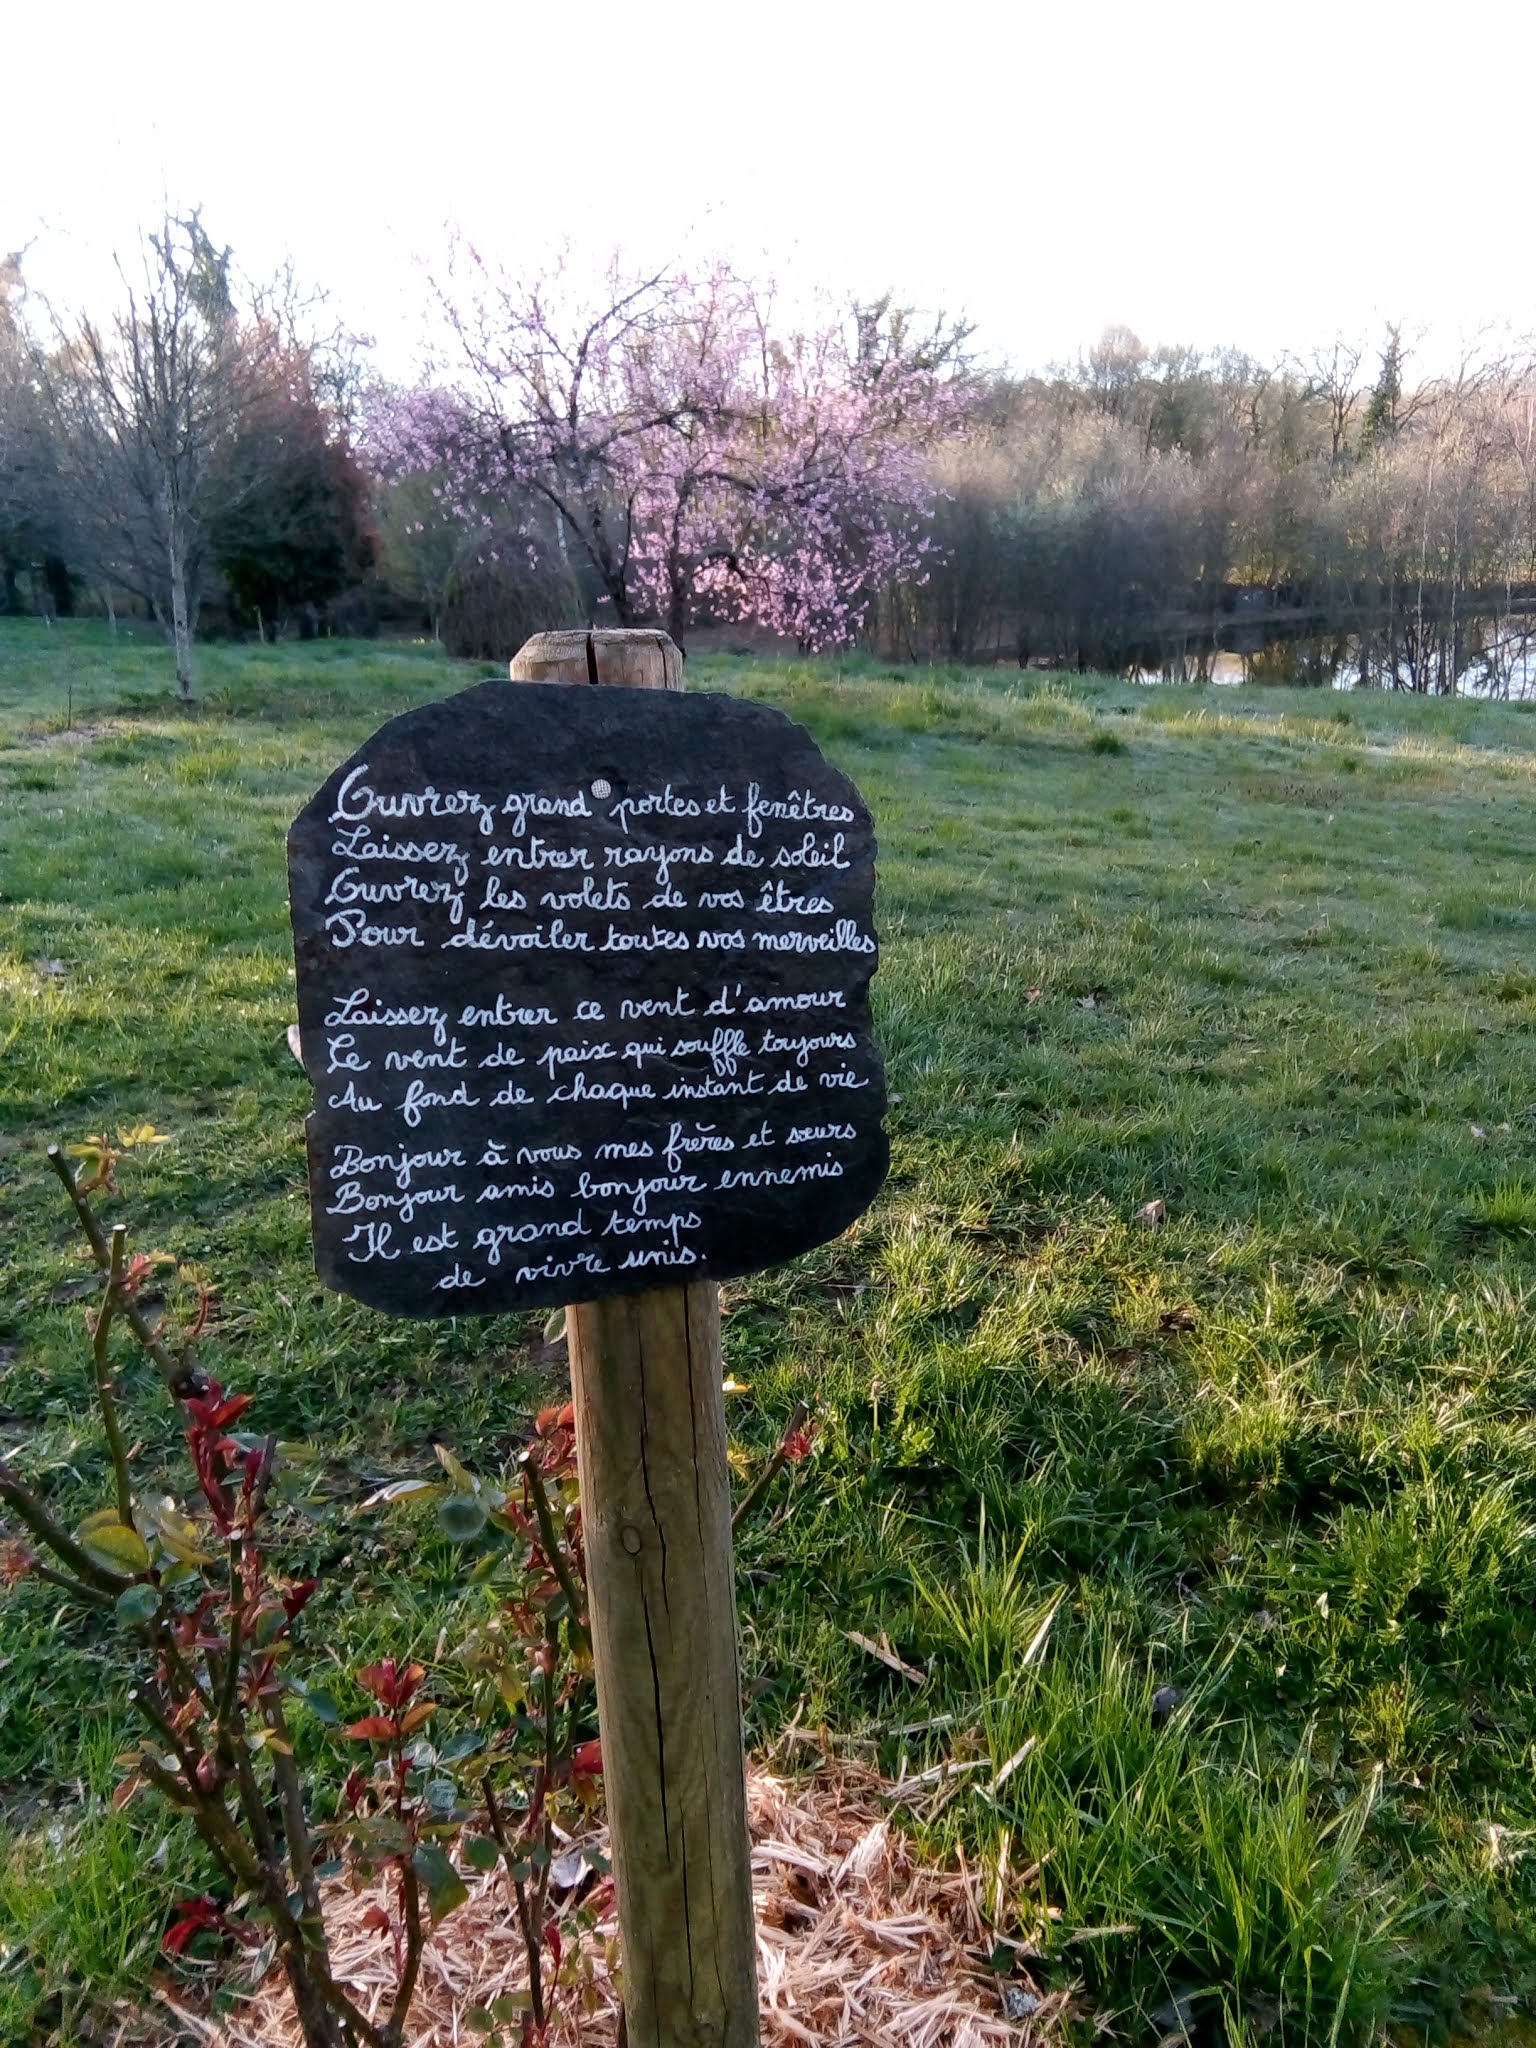 Ouvrez grand portes et fenêtres
Laissez entrer rayons de soleil
Ouvrez les volets de vos êtres
Pour dévoiler toutes vos merveilles
Laissez entrer ce vent d'amour
Le vent de paix qui souffle toujours
Au fond de chaque instant de vie
Bonjour à vous mes frères et sœurs
Bonjour amis bonjour ennemis
Il est grand temps
de vivre unis.